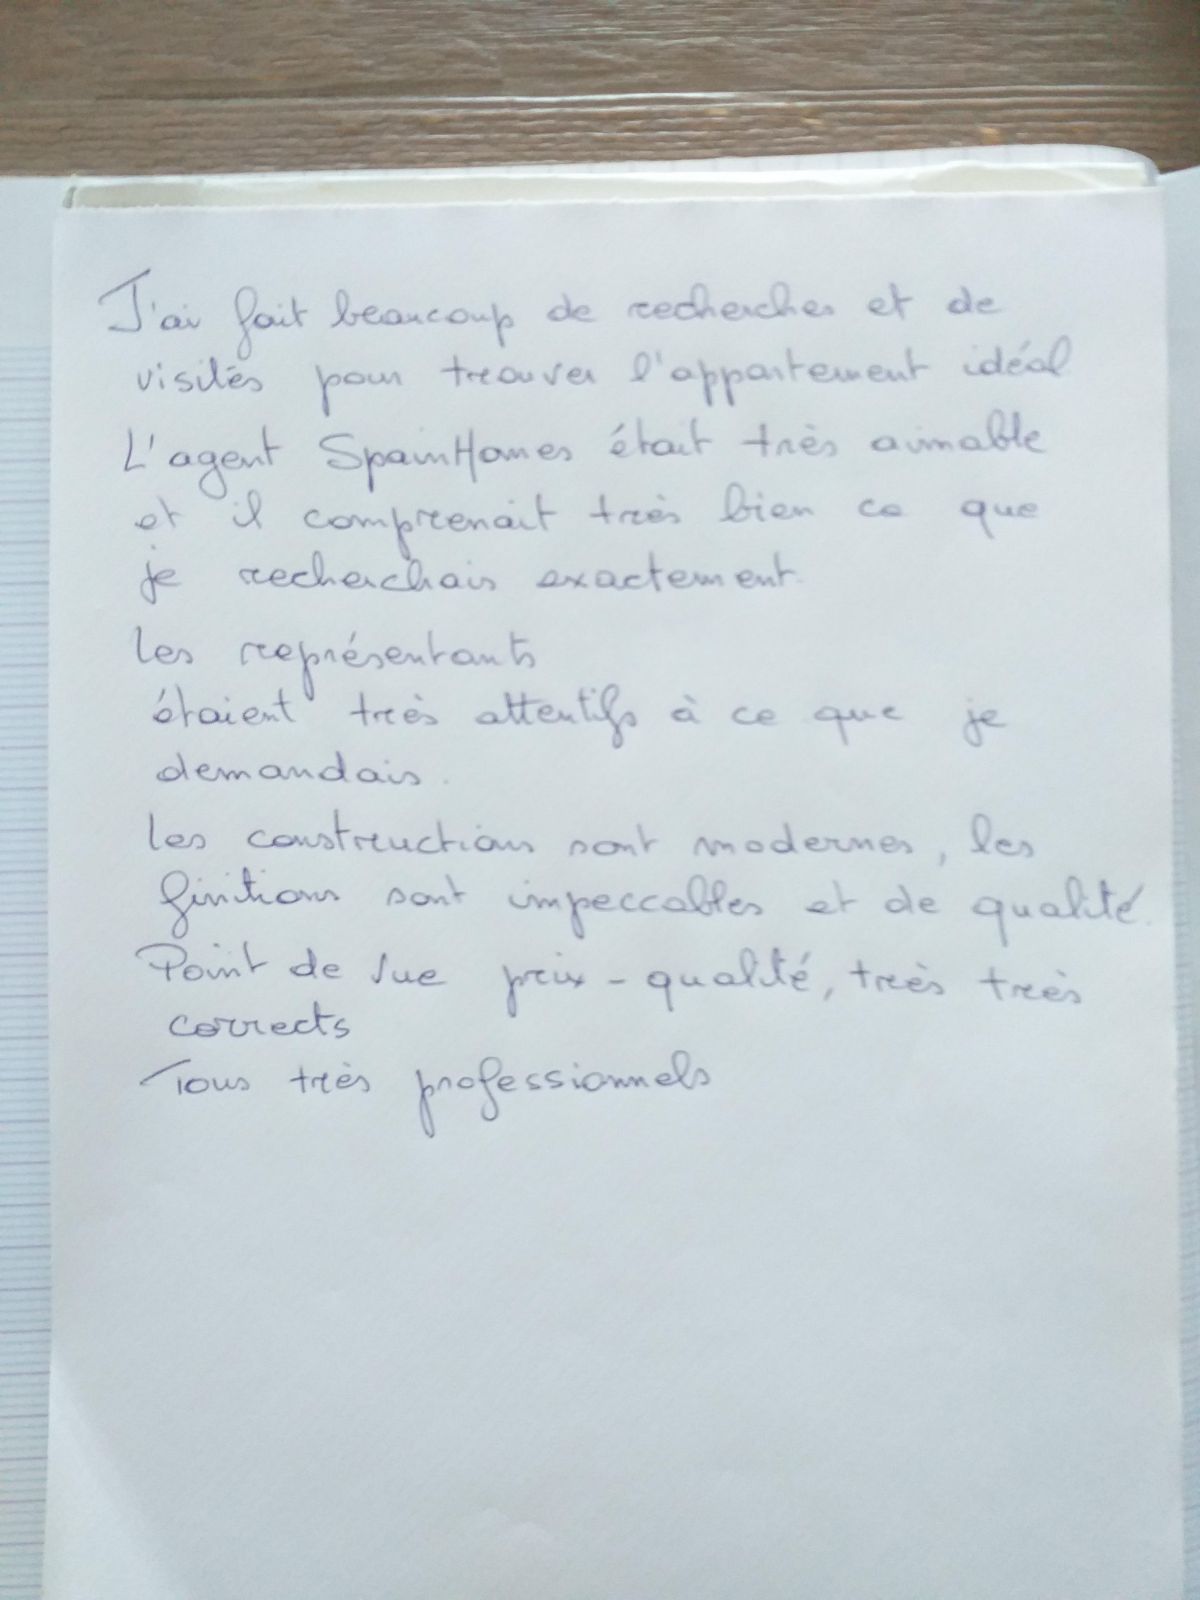 J'ai fait beaucoup de recherches et de
visités pour trouver l'appartement idéal
L'agent SpainHomes était très aimable
et il comprenait très bien ce que
je recherchais exactement.
les représentants
étaient très attentifs à ce que je
demandais.
les constructions sont modernes, les
finitions sont impeccables et de qualité.
Point de vue prix - qualité, très très
corrects
Tous très professionnels